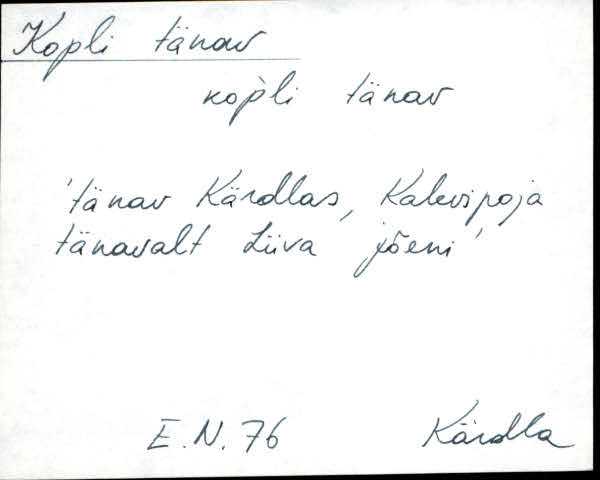 Kopli tänav
kop̀li tänav
'tänav Kärdlas, Kalevipoja
tänavalt Liiva jõeni'
E.N.76 Kärdla